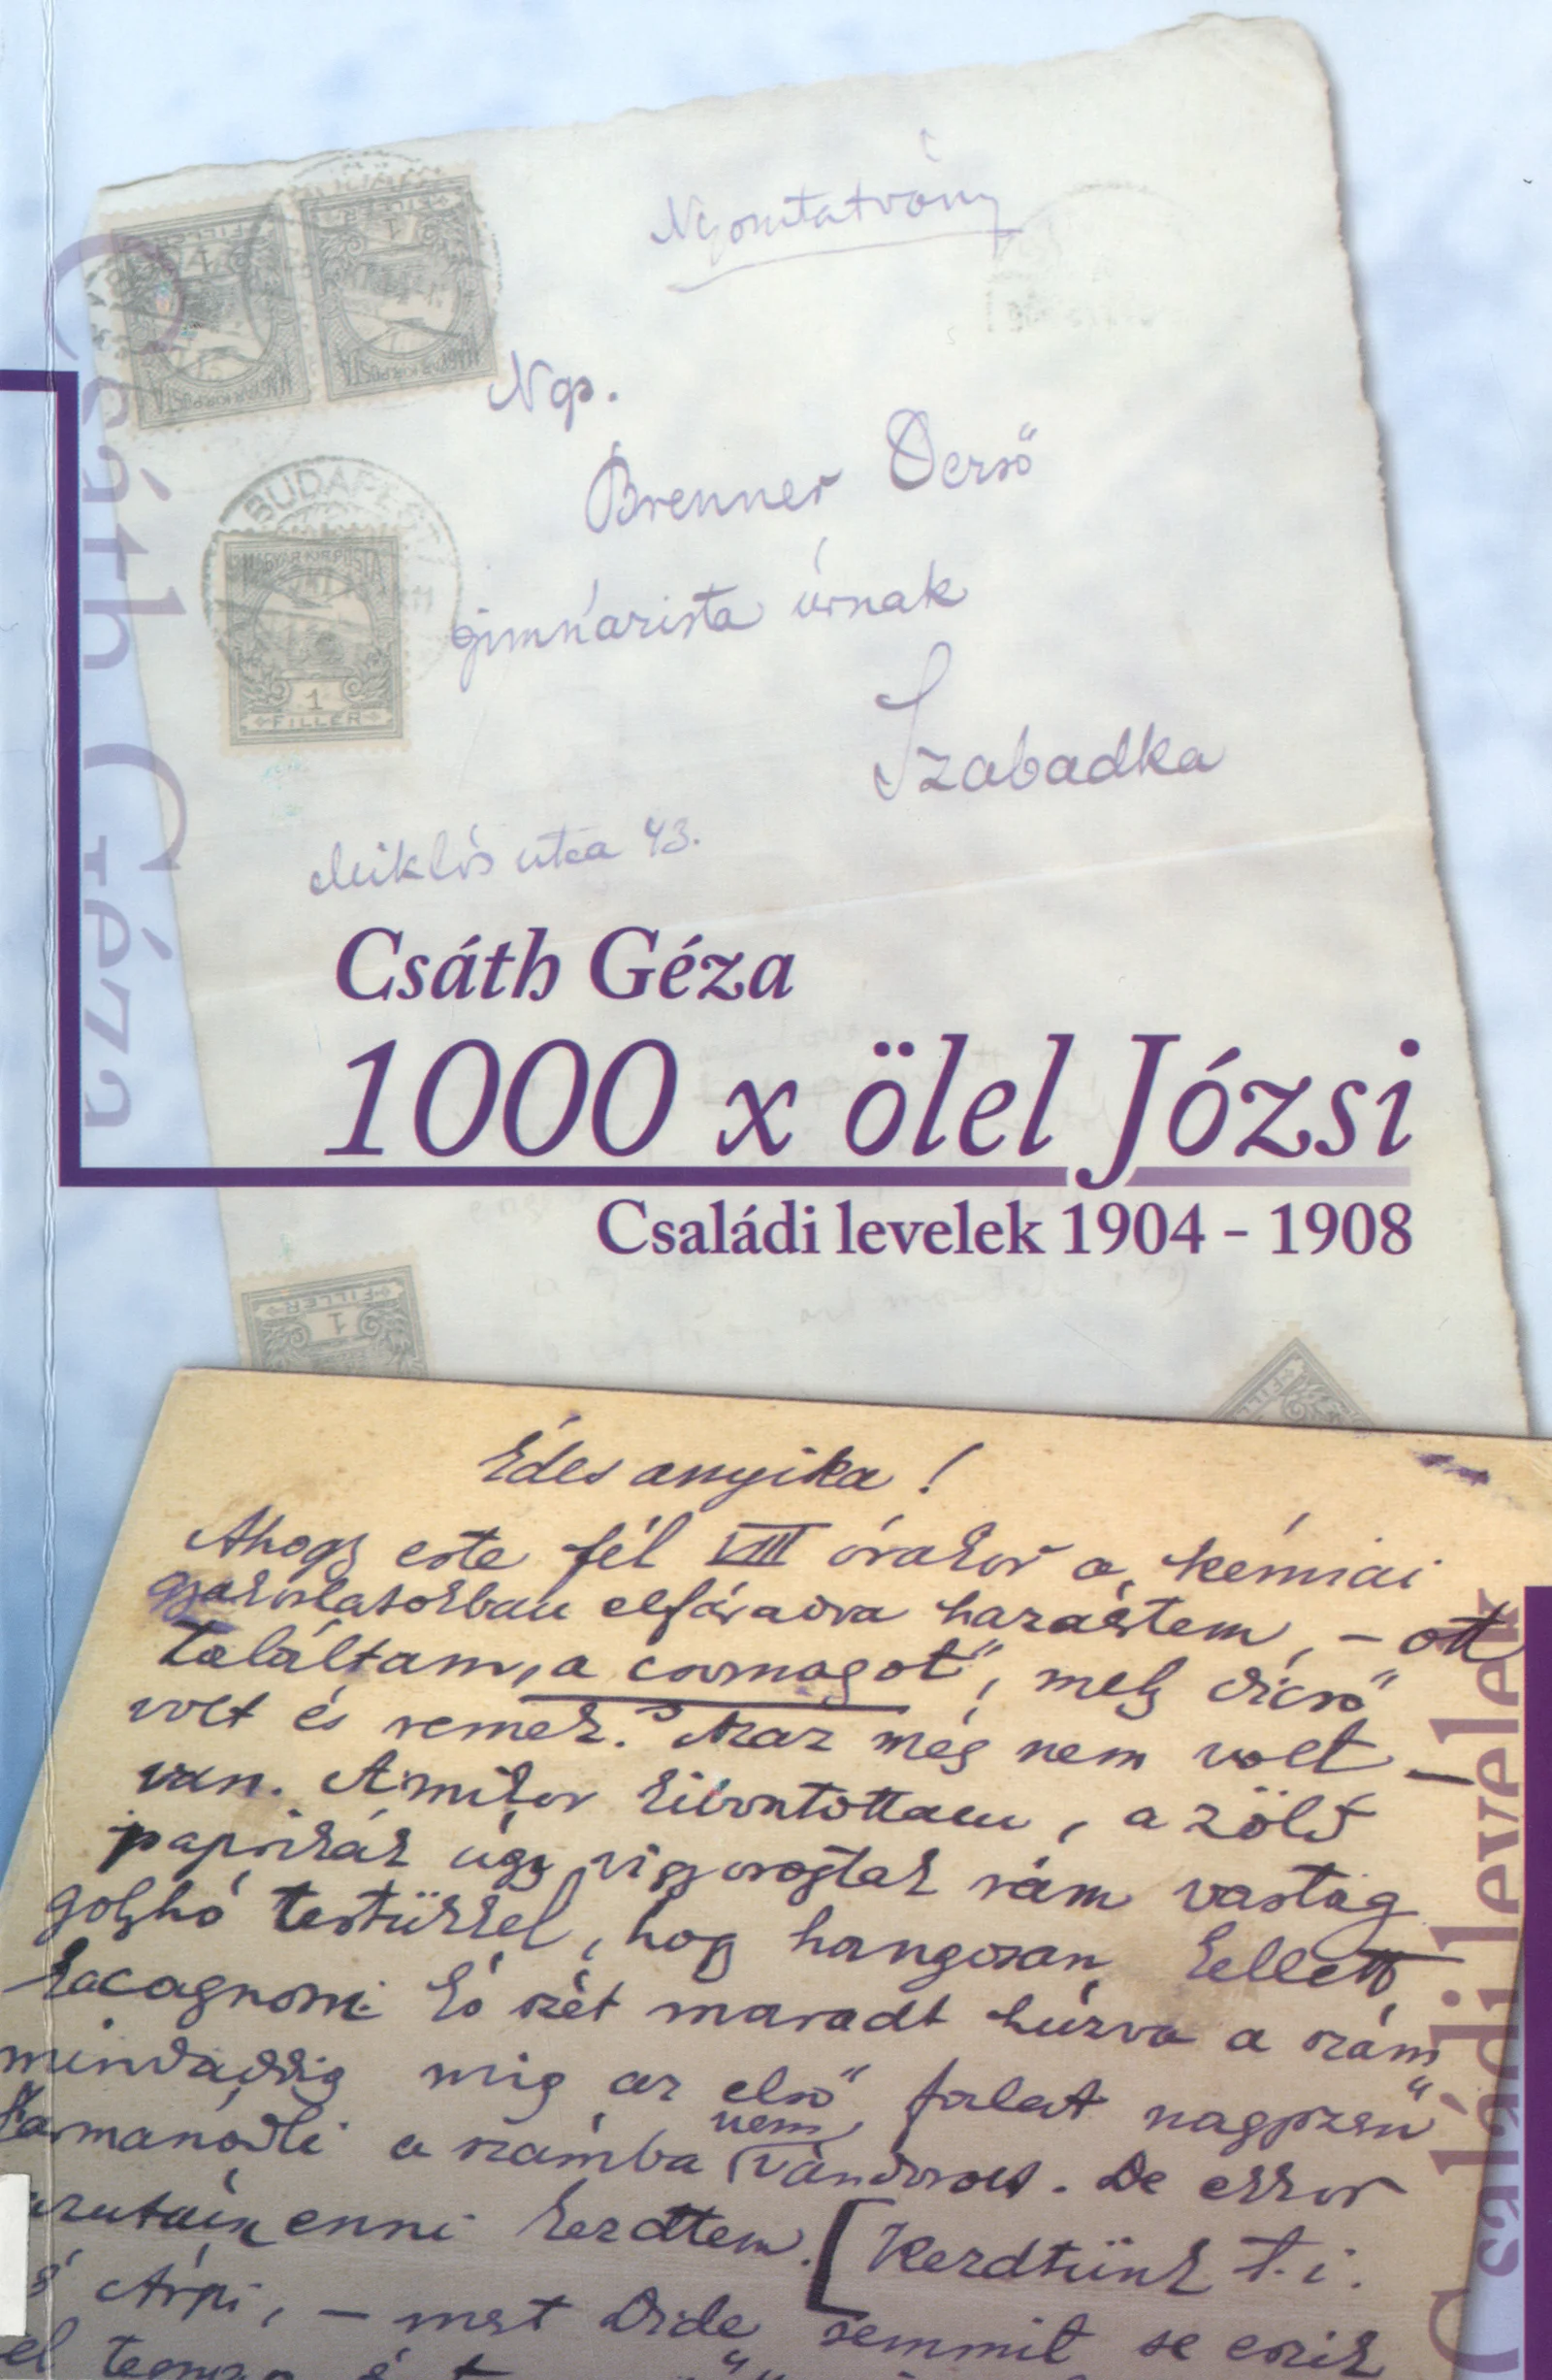 Nyomtatvány
Ngs.
Brenner Dezső
gimnázista úrnak
Szabadka
Miklós utca 43.
BUDAPEST
MAGYAR KIR. POSTA
1
FILLÉR
Csáth Géza
Csáth Géza
1000 x ölel Józsi
Családi levelek 1904 - 1908
FILLÉR
1
Édes anyika!
Ahogy este fél VIII órakor a kémiai
gyakorlatokban elfáradva hazaértem, – ott
találtam „a csomagot", mely dicső
volt és remek. Azaz még nem volt –
van. Amikor kibontottam, a zöld
paprikák úgy vigyorogtak rám vastag
golyhó testükkel, hogy hangosan kellett
kacagnom és szét maradt húzva a szám
mindaddig míg az első falat nagyszerű
a számba nem vándorolt. De ekkor
azután enni kezdtem. [Kezdtünk t. i.
Árpi, – mert Dide semmit se eszik
el
Családi levelek